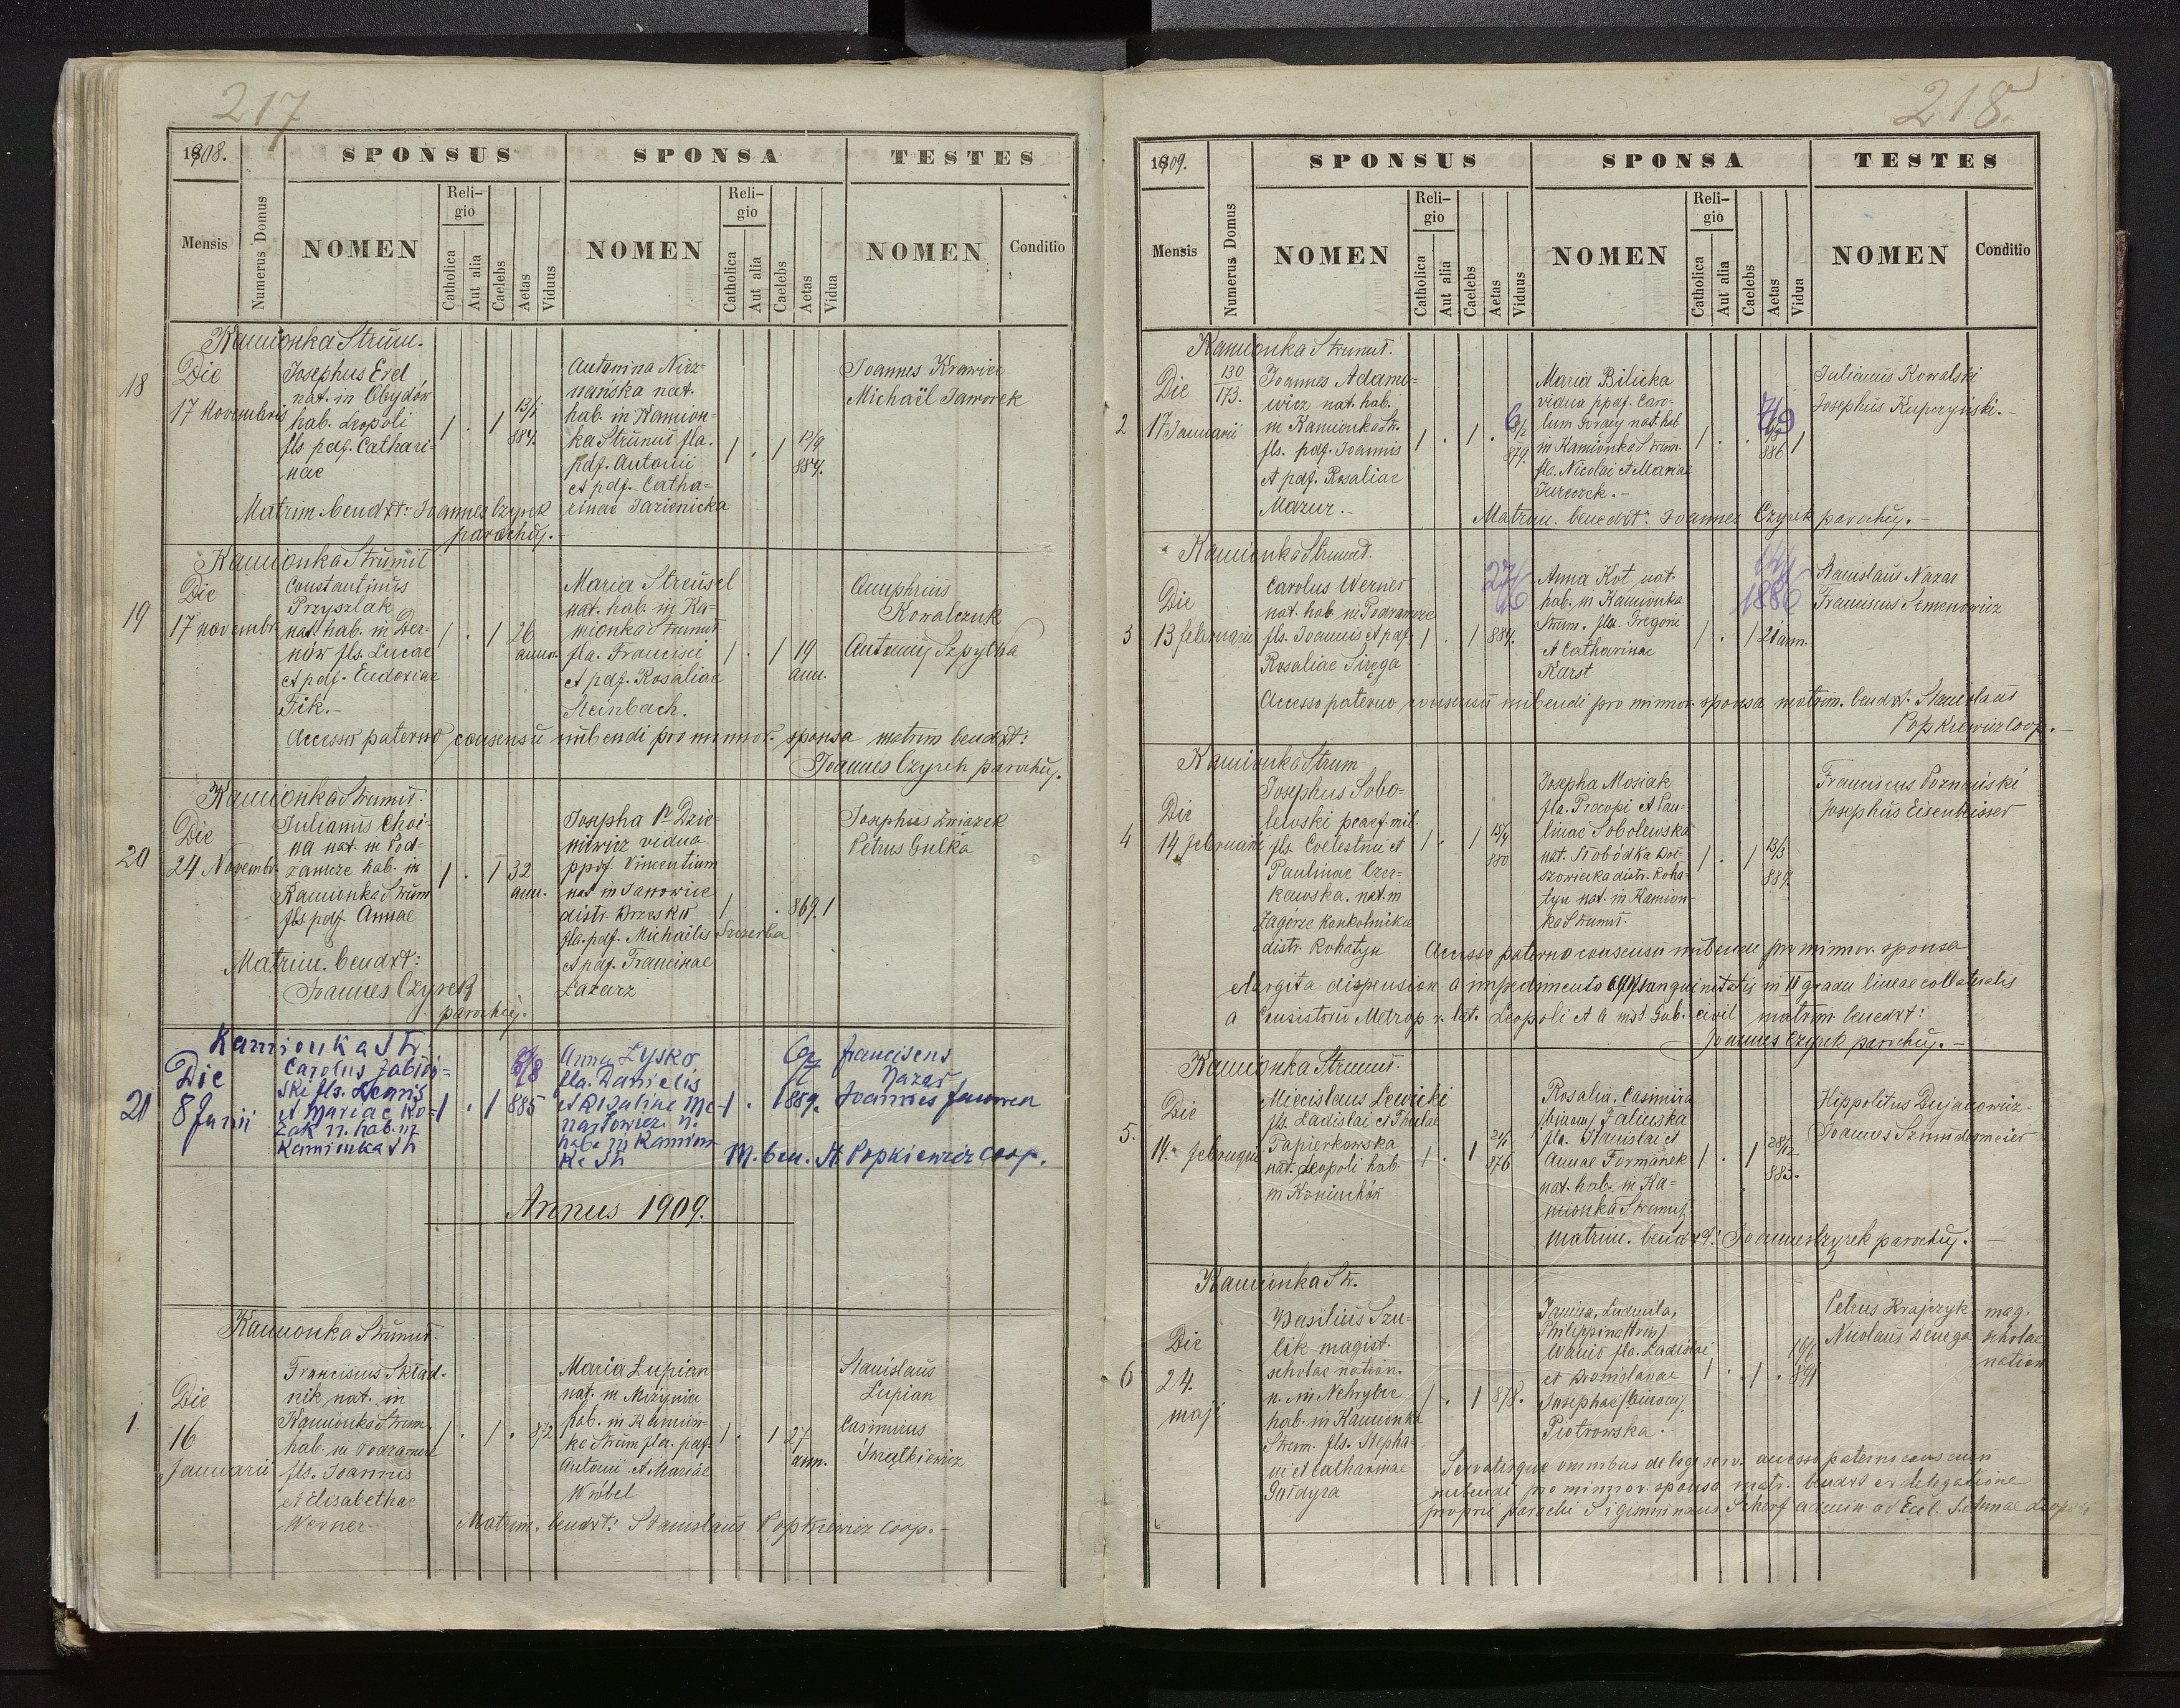 217
1908.
SPONSUS
SPONSA
TESTES
Mensis
Numerus Domus
NOMEN
Religio
Catholica
Aut alia
Caelebs
Aetas
Viduus
NOMEN
Religio
Catholica
Aut alia
Caelebs
Aetas
Vidua
NOMEN
Conditio
Kamionka Strum.
18
Die
17 Novembris
Josephus Erel
nat. in Obydów
hab. Leopoli
fls pdf. Cathari-
nae
1 . 1 13/1
884.
Antonina Niez-
nańska nat.
hab. in Kamion-
ka Strumił fla.
pdf. Antonii
et pdf. Catha-
rinae Jazienicka
1 . 1 12/9
884.
Joannes Krawiec
Michaël Jaworek
Matrim. bendxt: Joannes Czyrek
parochus.
Kamionka Strumił
19
Die
17 novembr.
Constantinus
Przyszlak
nat. hab. in Der-
nów fls. Lucae
et pdf. Eudoxiae
Fik.-
1 . 1 26
annor.
Maria Streusel
nat. hab. in Ka-
mionka Strumił
fla. Francisci
et pdf. Rosaliae
Steinbach.
1 . 1 19
ann.
Kowalczuk
Antonius Szpytka
Accesso paterno consensu nubendi pro minnor. sponsa matrim bendxt:
Joannes Czyrek parochus.
Kamionka Strumił.
20
Die
24 Novembr.
Julianus Choi-
na nat. in Pod-
zamcze hab. in
Kamionka Strum
fls. pdf. Annae
1 . 1 32
ann.
Josepha
vidua
ppdf. Vincentium
nat. in Janowice
distr. Brzesko
fla. pdf. Michaelis Szczerba
et pdf. Francinae
Łazarz
1 . . 869. 1
Josephus Związek
Petrus Gulka
Matrim. bendxt:
Joannes Czyrek
parochus.
Kamionka Str.
21
Die
8 Junii
Carolus Jabłoń-
ski fls. Leonis
et Mariae Ko-
zak n. hab. in
Kamionka Str
1 . 1 885
Anna Zysko
fla. Danielis
et Rosaliae
n.
hab. in Kamion
ka Str
1 . 1 889.
Franciscus
Nazar
Joannes Jaworek
M. ben. St. Popkiewicz Coop.
Annus 1909.
Kamionka Strumił.
1
Die
16
Januarii
Franciscus Skład-
nik nat. in
Kamionka Strum.
hab. in Podzamcze
fls. Joannis
et Elisabethae
Werner
1 . 1 . 872
Maria Łupian
nat. in Mizynia
hab. in Kamion-
ka Strum fla. pdf.
Antonii et Mariae
Wróbel
1 . 1 27
ann.
Stanislaus
Łupian
Casimirus
Świątkiewicz
Matrim. bendxt: Stanislaus Popkiewicz Coop.-
218.
1909.
SPONSUS
SPONSA
TESTES
Mensis
Numerus Domus
NOMEN
Religio
Catholica
Aut alia
Caelebs
Aetas
Viduus
NOMEN
Religio
Catholica
Aut alia
Caelebs
Aetas
Vidua
NOMEN
Conditio
Kamionka Strumił.
2
Die
17 Januarii
130
173.
Joannes Adamo-
wicz nat. hab.
in Kamionka Str.
fls. pdf. Joannis
et pdf. Rosaliae
Mazur.-
1 . 1 . 879.
Maria Bilicka
vidua ppdf. Caro-
lum Goracy nat. hab
in Kamionka Strum.
fla. Nicolai et Mariae
Jureczek.-
1 . . 886 1
Julianus Kowalski
Josephus Kupczyński.-
Matrim. benedxt: Joannes Czyrek parochus.-
Kamionka Strumił.
3
Die
13 februarii
Carolus Werner
nat. hab. in Podzamcze
fls. Joannis et pdf.
Rosaliae Siręga
1 . 1 884.
27/6
Anna Kot nat.
hab. in Kamionka
Strum. fla. Gregorii
et Catharinae
Karst
1 . 1 21 ann.
1886
Stanislaus Nazar
Franciscus Semenowicz
Accesso paterno consensu nubendi pro minnor. sponsa matrim. bendxt. Stanislaus
Popkiewicz Coop.-
Kamionka Strum
4
Die
14 februarii
Josephus Sobo-
lewski praef. mil.
fls. Coelestini et
Paulinae Czer-
kawska. nat. in
Zagórze Konkolnickie
distr. Rohatyn
1 . 1 15/4
880
Josepha Mosiak
fla. Procopi et Pau-
linae Sobolewska
nat. Słobódka Boł-
szowiecka distr. Roha-
tyn nat. in Kamion-
ka Strumił.
1 . 1 13/3
889.
Franciscus Poznański
Josephus Eisenbeisser
Accesso paterno consensu nubendi pro minnor. sponsa
elargita dispension. a impedimento consanguinitatis in II gradu lineae collateralis
a Consistorio Metrop. r. lat. Leopoli et a inst. Gub. civil matrim benedxt:
Joannes Czyrek parochus.-
Kamionka Strumił.
5.
Die
14. februarii
Miecislaus Lewicki
fls. Ladislai et Theclae
Papierkowska
nat. Leopoli hab.
in Koniuchów
1 . 1 21/1
876
Rosalia, Casimira
(binom) Falinska
fla. Stanislai et
Annae Formanek
nat. hab. in Ka-
mionka Strumił
1 . 1 28/12
883.
Hippolitus Dujanowicz
Joannes Szmidermeier
matrim. bendxt: Joannes Czyrek parochus.-
Kamionka Str.
6
Die
24.
maji
Basilius Szu-
lik magist.
scholae nation.
n. in Nehrybce
hab. in Kamionka
Strum. fls. Stepha-
ni et Catharinae
Gołdyra
1 . 1 878.
Janina, Ludmila,
Philippina (trin)
Wanio fla. Ladislai
et Bronislavae
Josephae (binom).
Piotrowska.
1 . 1 . 891
Petrus Krajczyk
Nicolaus Denega
mag.
scholae
nation
Servatisque omnibus de lege serv. accesso paterno consensu
nubendi pro minnor. sponsa matr. bendxt ex delegatione
proprii parochi Sigismundus